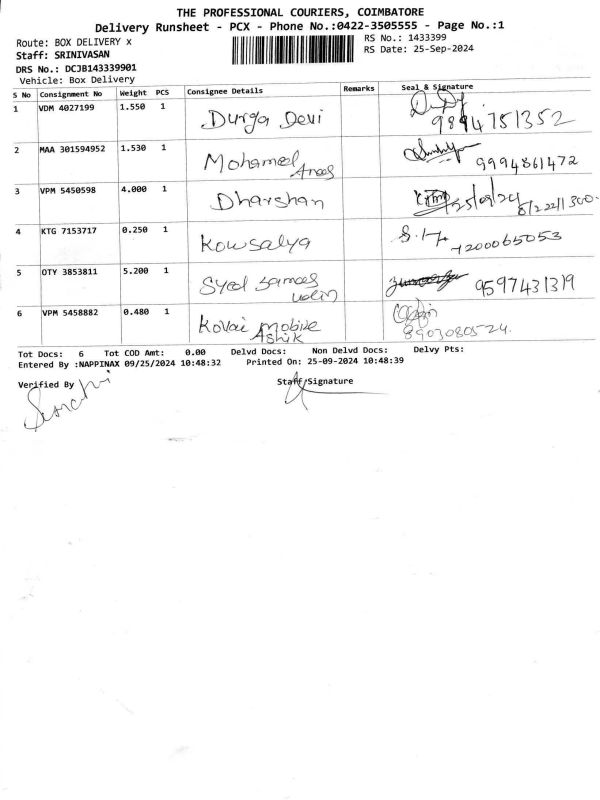 THE PROFESSIONAL COURIERS, COIMBATORE
Delivery Runsheet - PCX - Phone No.:0422-3505555 - Page No.:1
Route: BOX DELIVERY x
RS No.: 1433399
Staff: SRINIVASAN
RS Date: 25-Sep-2024
DRS No.: DCJB143339901
Vehicle: Box Delivery
S No Consignment No Weight PCS Consignee Details Remarks Seal & Signature
1 VDM 4027199 1.550 1 Durga Devi 9894751352
2 MAA 301594952 1.530 1 Mohamed Anas 9994861472
3 VPM 5450598 4.000 1 Dharshan 25/09/24
4 KTG 7153717 0.250 1 Kowsalya 7200065053
5 OTY 3853811 5.200 1 Syed 9597431319
6 VPM 5458882 0.480 1 Kovai Mobile
Ashik 8903080524.
Tot Docs: 6 Tot COD Amt: 0.00 Delvd Docs: Non Delvd Docs: Delvy Pts:
Entered By :NAPPINAX 09/25/2024 10:48:32 Printed On: 25-09-2024 10:48:39
Verified By Staff Signature